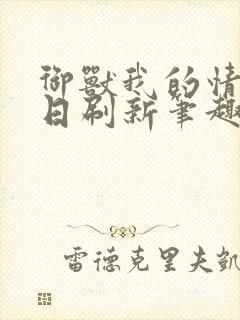 御獸我的情
日刷新筆趣
雷德克里夫凱